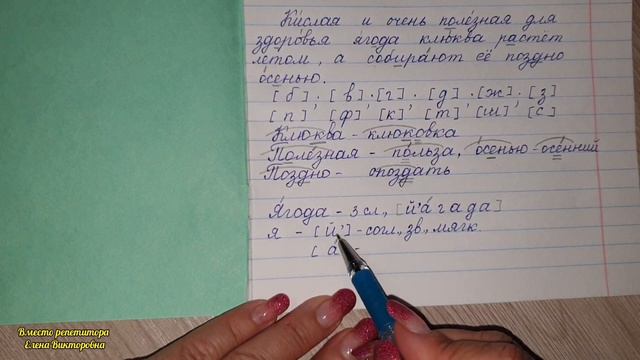 Ки́слая и очень поле́зная для
здоро́вья я́года клю́ква растёт
ле́том, а собира́ют её поздно
о́сенью.
[б] · [в] · [г] · [д] · [ж] · [з]
[п] ' [ф] ' [к] ' [т] ' [ш] ' [с]
Клюква - клюковка
Поле́зная - по́льза, о́сенью - осе́нний
По́здно - опоздать
Я́года - 3 сл., [й'а́ г а д а]
я - [й'] - согл., зв., мягк.
[а́
Вместо репетитора
Елена Викторовна